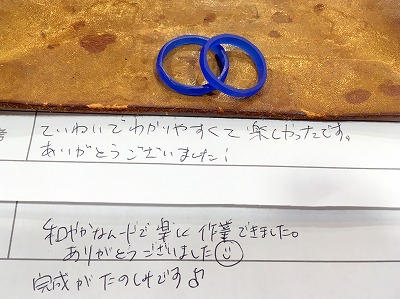 ていねいでわかりやすくて楽しかったです。
ありがとうございました!
和やかなムードで楽しく作業できました。
ありがとうございました
完成がたのしみです♪